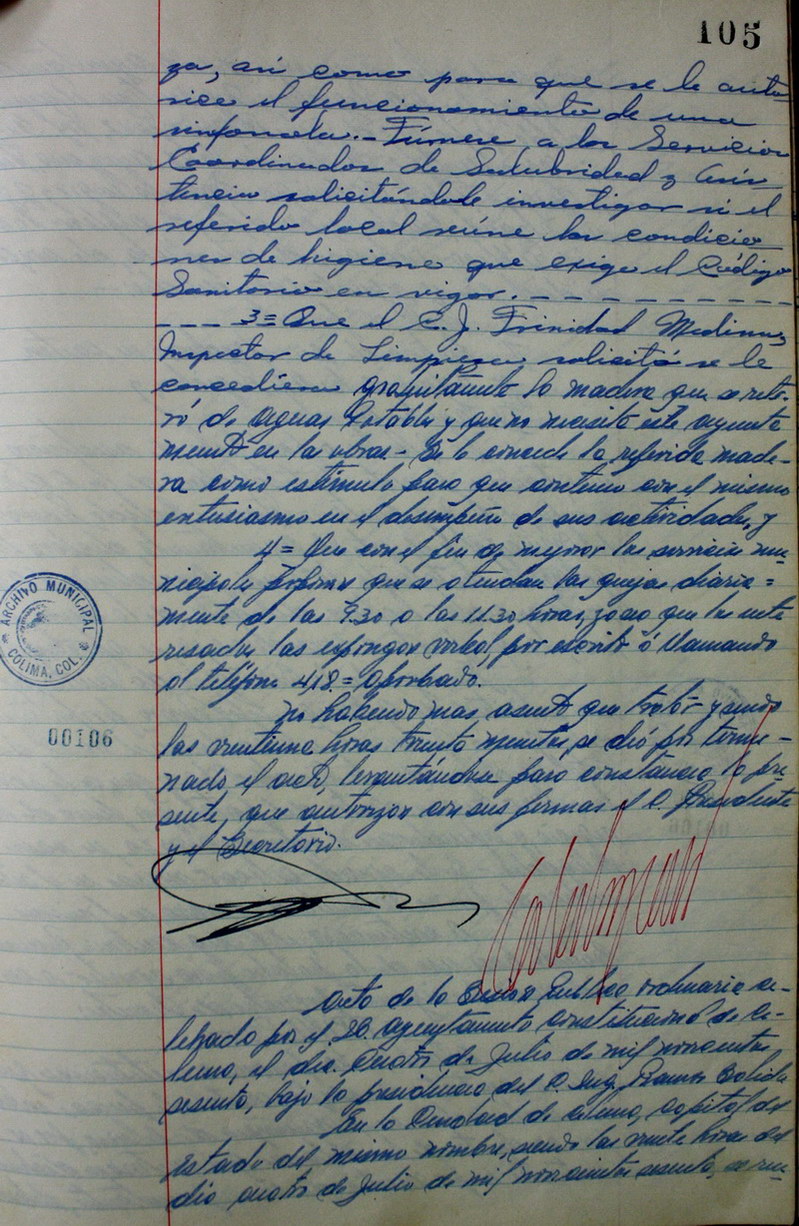 105
za, así como para que se le auto-
rice el funcionamiento de una
sinfonola.- Túrnese a los Servicios
Coordinados de Salubridad y Asis-
tencia solicitándole investigar si el
referido local reúne las condicio-
nes de higiene que exige el Código
Sanitario en vigor. - - - - - - - - - -
- - - 3= Que el C. J. Trinidad Medina,
Inspector de Limpieza solicitó se le
concediera gratuitamente la madera que se reti-
ró de aguas Potable y que no necesita este ayunta
miento en las obras- Se le concede la referida made-
ra como estímulo para que continue con el mismo
entusiasmo en el desempeño de sus actividades, y
4= Que con el fin de mejorar los servicios mu-
nicipales propone que se atiendan las quejas diaria=
mente de las 9.30 a las 11.30 horas, para que los inte
resados las expongan verbal, por escrito ó llamando
al teléfono 418.= Aprobado.
No habiendo mas asunto que tratar y siendo
las veintiuna horas treinta minutos, se dió por termi-
nado el acto, levantándose para constancia la pre
sente, que autorizan con sus firmas el C. Presidente
y el Secretario.
ARCHIVO MUNICIPAL
COLIMA, COL.
00106
Acta de la Sesión Pública ordinaria ce-
lebrada por el H. Ayuntamiento Constitucional de Co-
lima, el día Cuatro de Julio de mil novecientos
sesenta, bajo la presidencia del C. Ing. Ramos
En la Ciudad de Colima, capital del
Estado del mismo nombre, siendo las veinte horas del
día cuatro de Julio de mil novecientos sesenta, se reu-